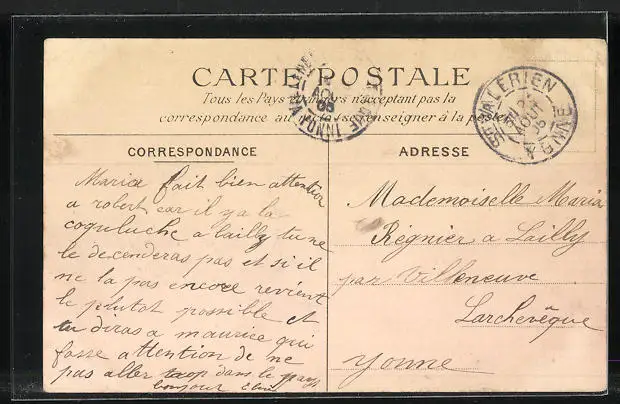 CARTE POSTALE
Tous les Pays étrangers n'acceptant pas la
correspondance au recto, se renseigner à la poste
CORRESPONDANCE
Maria fait bien attention
a robert car il y a la
coqueluche a lailly tu ne
le desenderas pas et si il
ne la pas encore revient
le plutot possible et
tu diras a maurice qui
fasse attention de ne
pas aller trop dans le pays
bonjour
ADRESSE
Mademoiselle Maria
Régnier a Lailly
par Villeneuve
Larchevêque
Yonne
ST VALERIEN
YONNE
AOUT